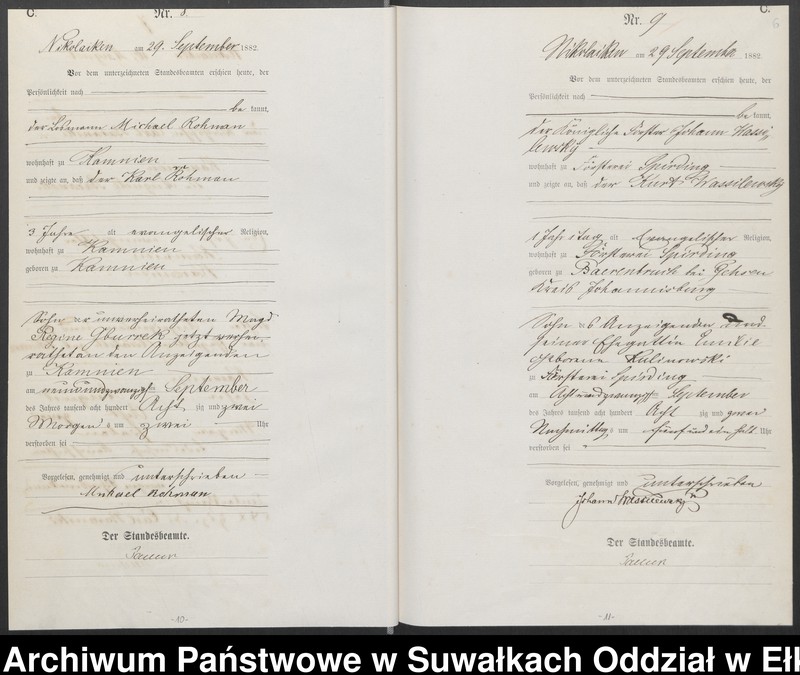 C.
Nr. 8.
Nikolaiken am 29. September 1882.
Vor dem unterzeichneten Standesbeamten erschien heute, der
Persönlichkeit nach
be kannt,
der Michael Rohman
wohnhaft zu Kamnien
und zeigte an, daß der Karl Rohman
3 Jahre alt evangelischer Religion,
wohnhaft zu Kamnien
geboren zu Kamnien
Sohn der unverheiratheten Magd
Regine Gburrek jetzt verhei-
rathet an den Anzeigenden
zu Kamnien
am neunundzwanzigsten September
des Jahres tausend acht hundert Acht zig und zwei
Morgens um zwei Uhr
verstorben sei
Vorgelesen, genehmigt und unterschrieben
Michael Rohman
Der Standesbeamte.
-10-
C.
6
Nr. 9
Nikolaiken am 29 September 1882.
Vor dem unterzeichneten Standesbeamten erschien heute, der
Persönlichkeit nach
be kannt,
der Königliche Förster Johann Wassi-
lewsky
wohnhaft zu Försterei Spirding
und zeigte an, daß der Kurt Wassilewsky
1 Jahr 1 Tag alt Evangelischer Religion,
wohnhaft zu Försterei Spirding
geboren zu bei Gehsen
Kreis Johannisburg
Sohn des Anzeigenden und
seiner Ehegattin Emilie
geborene Kalinowski
zu Försterei Spirding
am Achtundzwanzigsten September
des Jahres tausend acht hundert Acht zig und zwei
Nachmittags um fünf und ein halb Uhr
verstorben sei
Vorgelesen, genehmigt und unterschrieben
Johann Wassilewsky
Der Standesbeamte.
-11-
Archiwum Państwowe w Suwałkach Oddział w Ełk